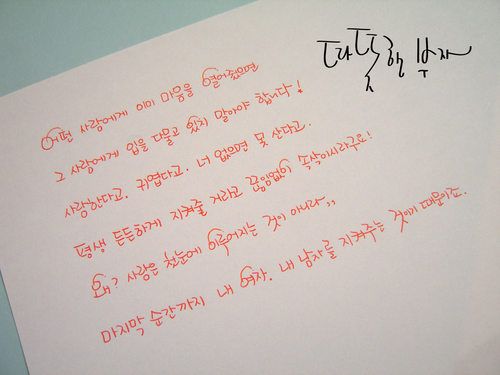 따뜻한 부자
어떤 사람에게 이미 마음을 열어줬으면
그 사람에게 입을 다물고 있지 말아야 합니다!
사랑한다고. 귀엽다고. 너 없으면 못 산다고.
평생 든든하게 지켜줄 거라고 끊임없이 속삭이시라구요!
왜? 사랑은 첫눈에 이루어지는 것이 아니라,,
마지막 순간까지 내 여자. 내 남자를 지켜주는 것이기 때문이죠.